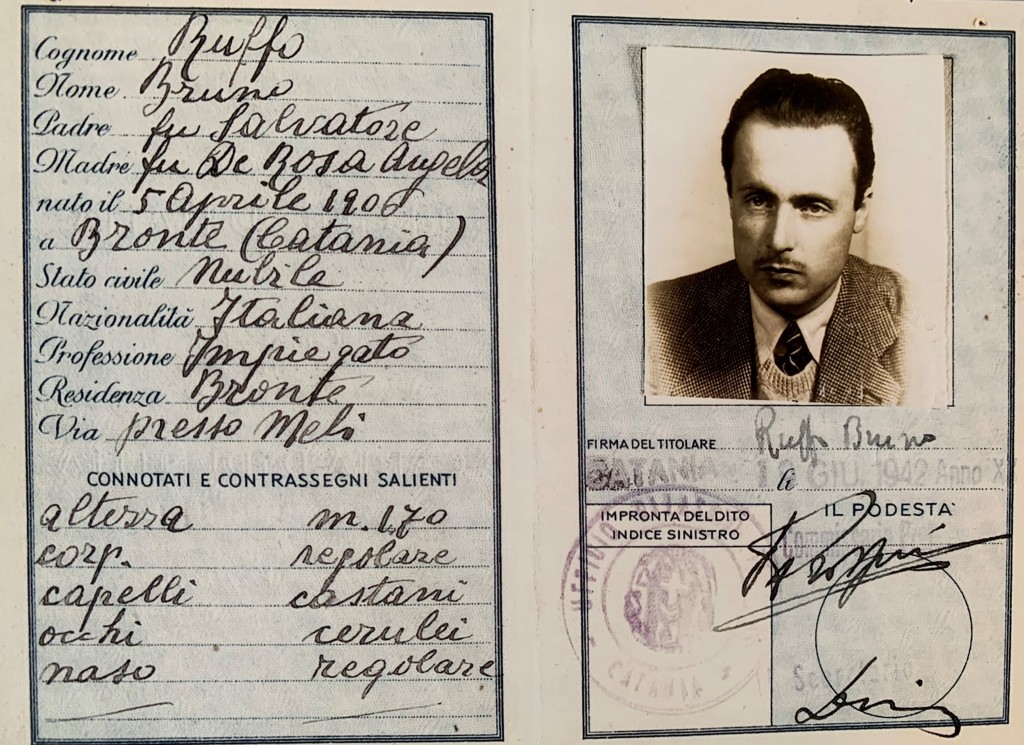 Cognome Ruffo
Nome Bruno
Padre fu Salvatore
Madre fu De Rosa Angela
nato il 5 Aprile 1906
a Bronte (Catania)
Stato civile Nubile
Nazionalità Italiana
Professione Impiegato
Residenza Bronte
Via presso Meli
CONNOTATI E CONTRASSEGNI SALIENTI
altezza m. 1,70
corp. regolare
capelli castani
occhi cerulei
naso regolare
FIRMA DEL TITOLARE Ruffo Bruno
CATANIA li 12 GIU. 1942 Anno X
IMPRONTA DEL DITO
INDICE SINISTRO
IL PODESTÀ
UFFICIO
CATANIA